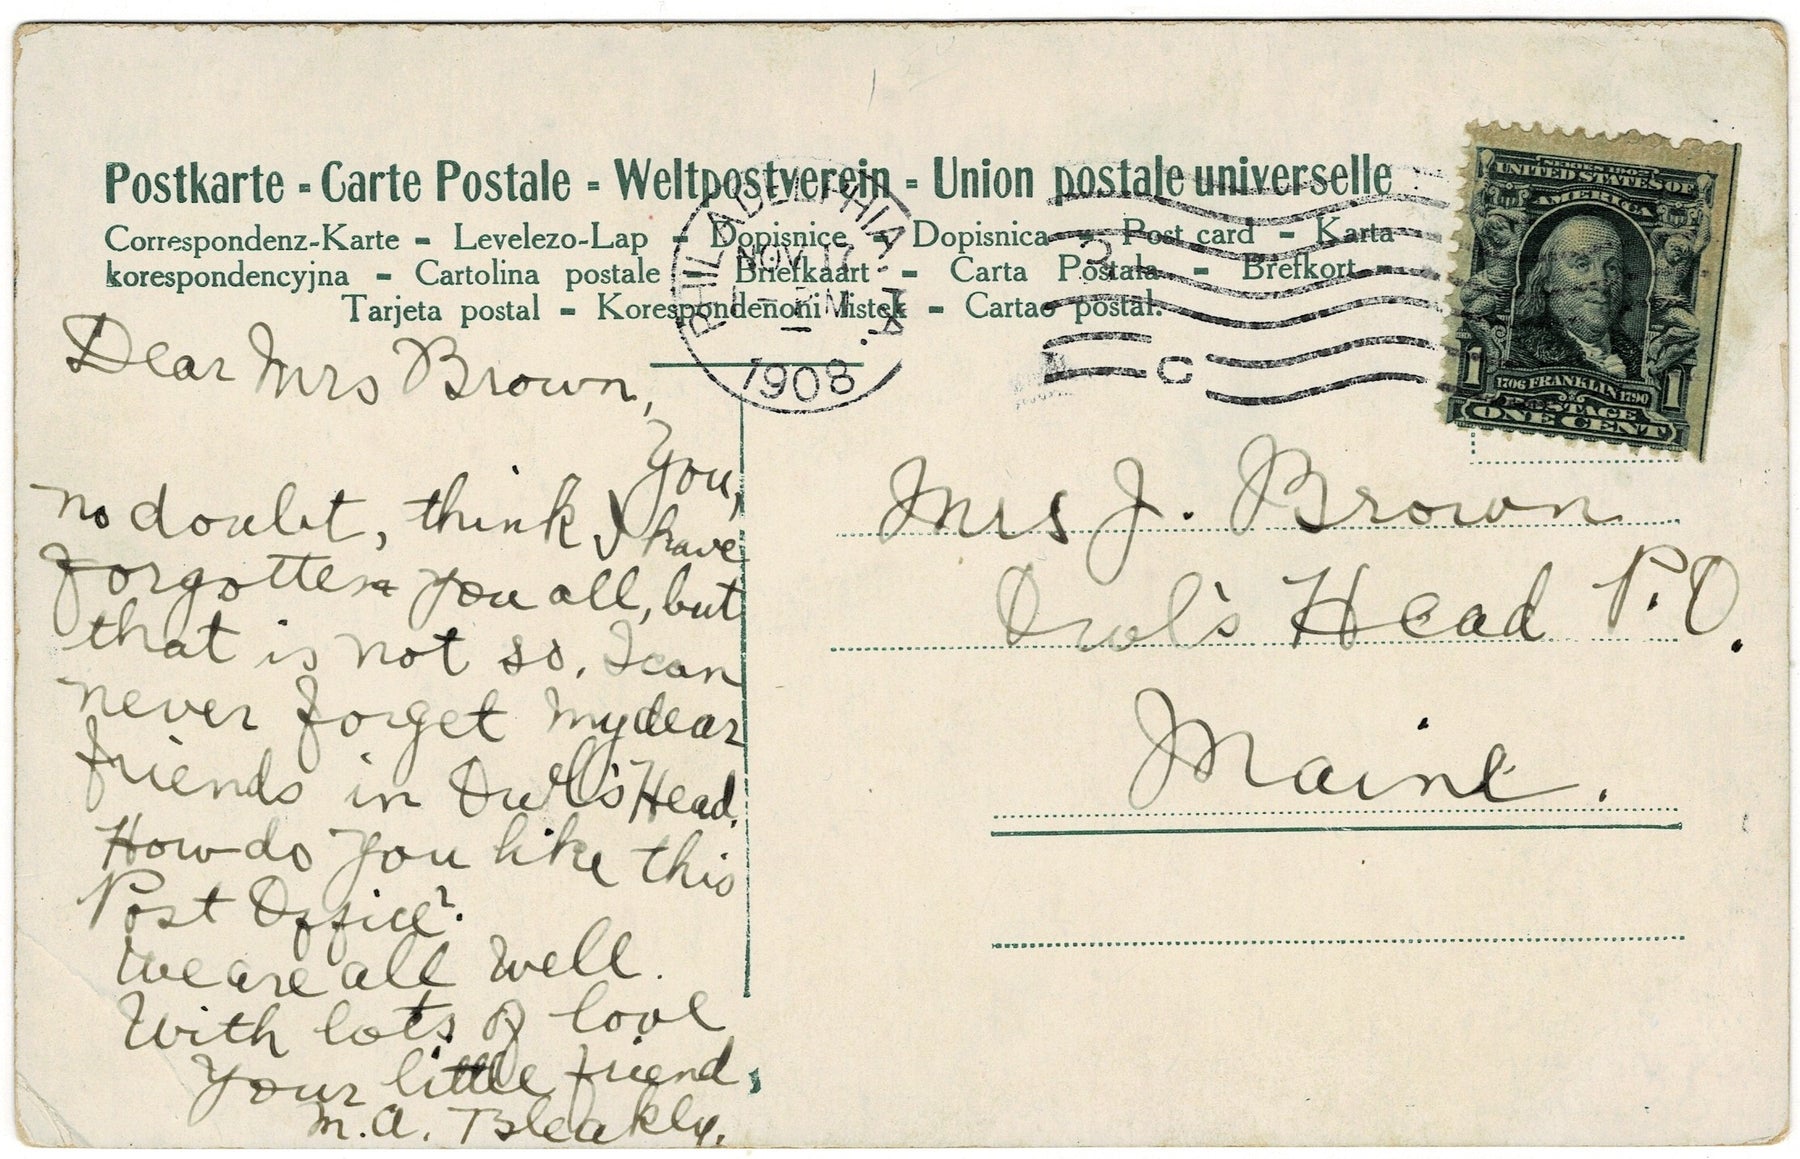 Postkarte - Carte Postale - Weltpostverein - Union postale universelle
Correspondenz-Karte - Levelezo-Lap - Dopisnice - Dopisnica - Post card - Karta
korespondencyjna - Cartolina postale - Briefkaart - Carta Postala - Brefkort -
Tarjeta postal - Korespondencni listek - Cartao postal.
PHILADELPHIA, PA.
NOV 17
1908
C
UNITED STATES OF
AMERICA
1706 FRANKLIN 1790
1 POSTAGE 1
ONE CENT
Dear Mrs Brown,
You,
no doubt, think I have
forgotten you all, but
that is not so. I can
never forget my dear
friends in Owl's Head.
How do you like this
Post Office?
We are all well.
With lots of love
Your little friend,
M.A. Bleakly.
Mrs J. Brown
Owl's Head P.O.
Maine.